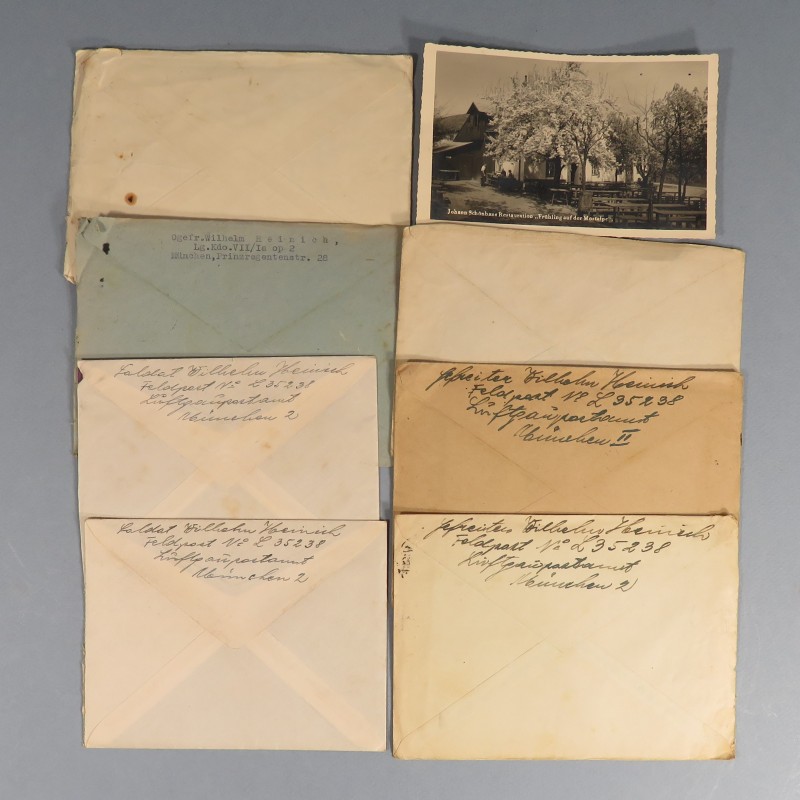 Johann Schönhuss Restauration „Frühling auf der Mostalpe"
Ogefr.Wilhelm H e i n i c h ,
Lg.Kdo.VII/Ia op 2
München,Prinzregentenstr. 28
Soldat Wilhelm Heinich
Feldpost No L 35238
Luftgaupostamt
München 2
Gefreiter Wilhelm Heinich
Feldpost No L 35238
Luftgaupostamt
München II
Soldat Wilhelm Heinich
Feldpost No L 35238
Luftgaupostamt
München 2
Gefreiter Wilhelm Heinich
Feldpost No L 35238
Luftgaupostamt
München 2